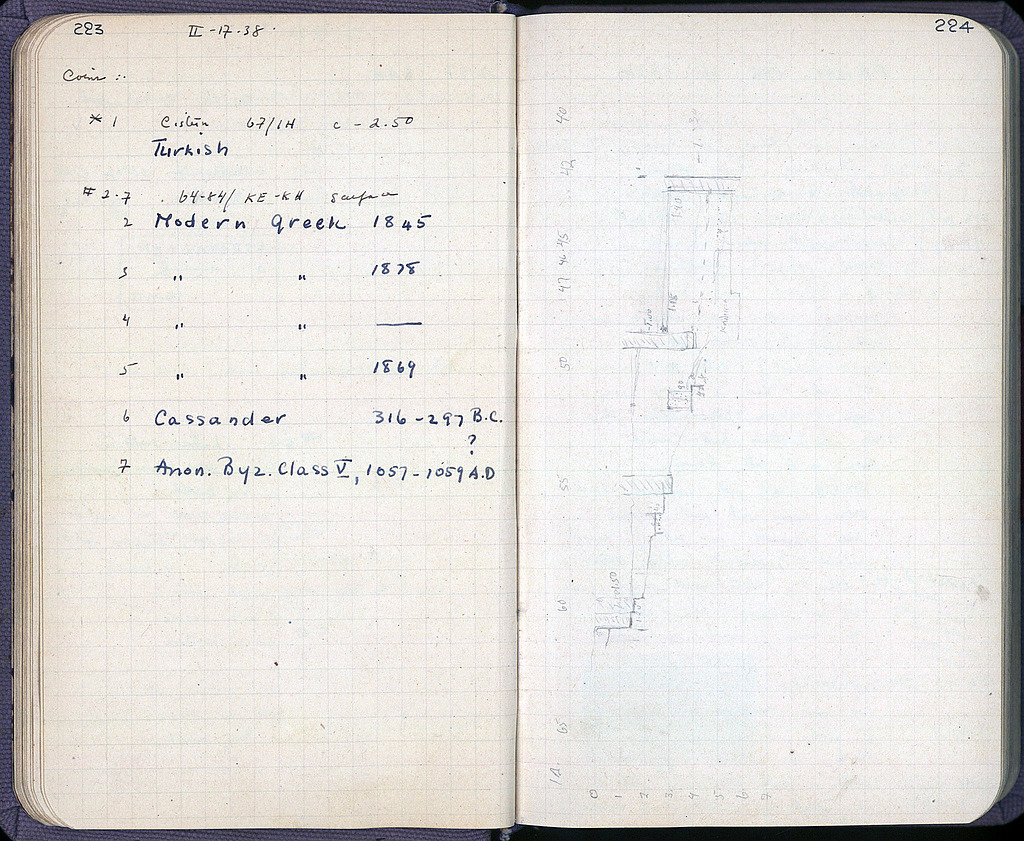 223
II-17-38
Coins :-
* 1 Cistern 67/IH c - 2.50
Turkish
# 2-7 . 64-84/ KE-KH Surface
2 Modern Greek 1845
3 " " 1878
4 " " —
5 " " 1869
6 Cassander 316-297 B.C.
?
7 Anon. Byz. Class V, 1057-1059 A.D
224
40
42
45
47
50
55
60
65
0 1 2 3 4 5 6 7